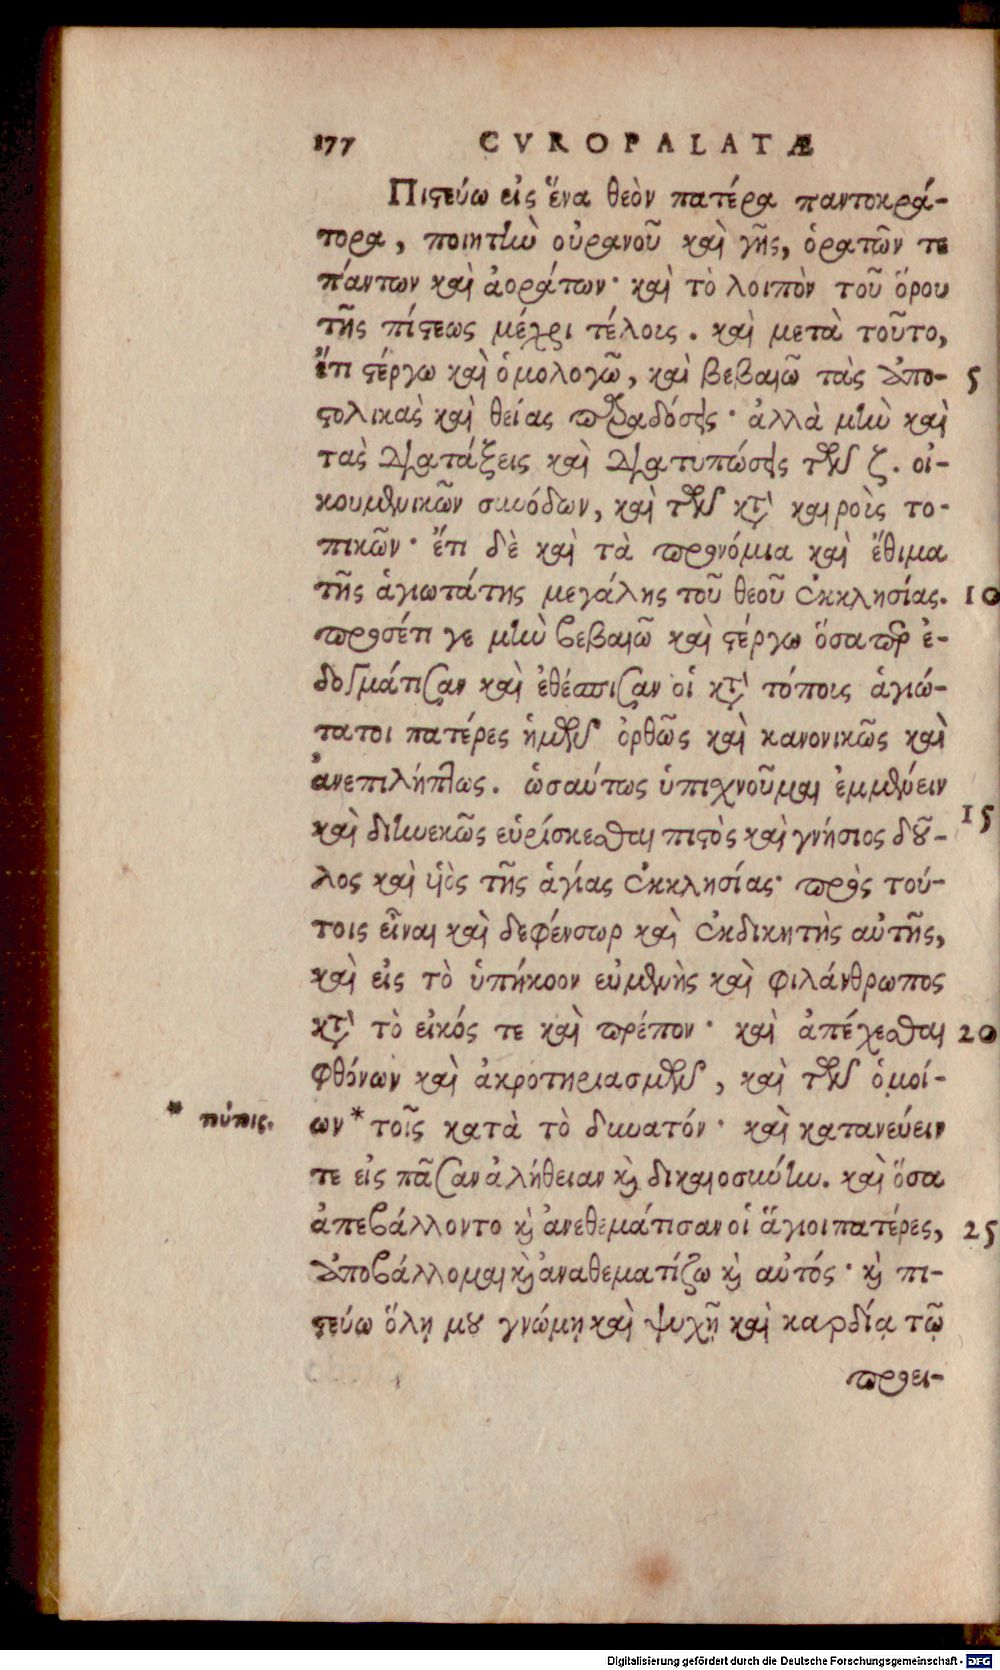 177 CVROPALATÆ
Πιστεύω εἰς ἕνα θεὸν πατέρα παντοκρά-
τορα, ποιητὴν οὐρανοῦ καὶ γῆς, ὁρατῶν τε
πάντων καὶ ἀοράτων· καὶ τὸ λοιπὸν τοῦ ὅρου
τῆς πίστεως μέχρι τέλους. καὶ μετὰ τοῦτο,
ἔτι στέργω καὶ ὁμολογῶ, καὶ βεβαιῶ τὰς ἀπο- 5
στολικὰς καὶ θείας παραδόσεις· ἀλλὰ μὴν καὶ
τὰς διατάξεις καὶ διατυπώσεις τῶν ζ. οἰ-
κουμενικῶν συνόδων, καὶ τῶν κατὰ καιροὺς το-
πικῶν· ἔτι δὲ καὶ τὰ προνόμια καὶ ἔθιμα
τῆς ἁγιωτάτης μεγάλης τοῦ θεοῦ ἐκκλησίας. 10
προσέτι γε μὴν βεβαιῶ καὶ στέργω ὅσαπερ ἐ-
δογμάτισαν καὶ ἐθέσπισαν οἱ κατὰ τόπους ἁγιώ-
τατοι πατέρες ἡμῶν ὀρθῶς καὶ κανονικῶς καὶ
ἀνεπιλήπτως. ὡσαύτως ὑπισχνοῦμαι ἐμμένειν
καὶ διηνεκῶς εὑρίσκεσθαι πιστὸς καὶ γνήσιος δοῦ- 15
λος καὶ υἱὸς τῆς ἁγίας ἐκκλησίας· πρὸς τού-
τοις εἶναι καὶ δεφένσωρ καὶ ἐκδικητὴς αὐτῆς,
καὶ εἰς τὸ ὑπήκοον εὐμενὴς καὶ φιλάνθρωπος
κατὰ τὸ εἰκός τε καὶ πρέπον· καὶ ἀπέχεσθαι 20
φθόνων καὶ ἀκροτηριασμῶν, καὶ τῶν ὁμοί-
ων* τοῖς κατὰ τὸ δυνατόν· καὶ κατανεύειν
τε εἰς πᾶσαν ἀλήθειαν καὶ δικαιοσύνην. καὶ ὅσα
ἀπεβάλλοντο καὶ ἀνεθεμάτισαν οἱ ἅγιοι πατέρες, 25
ἀποβάλλομαι καὶ ἀναθεματίζω καὶ αὐτός· καὶ πι-
στεύω ὅλῃ μου γνώμῃ καὶ ψυχῇ καὶ καρδίᾳ τῷ
προει-
Digitalisierung gefördert durch die Deutsche Forschungsgemeinschaft - DFG